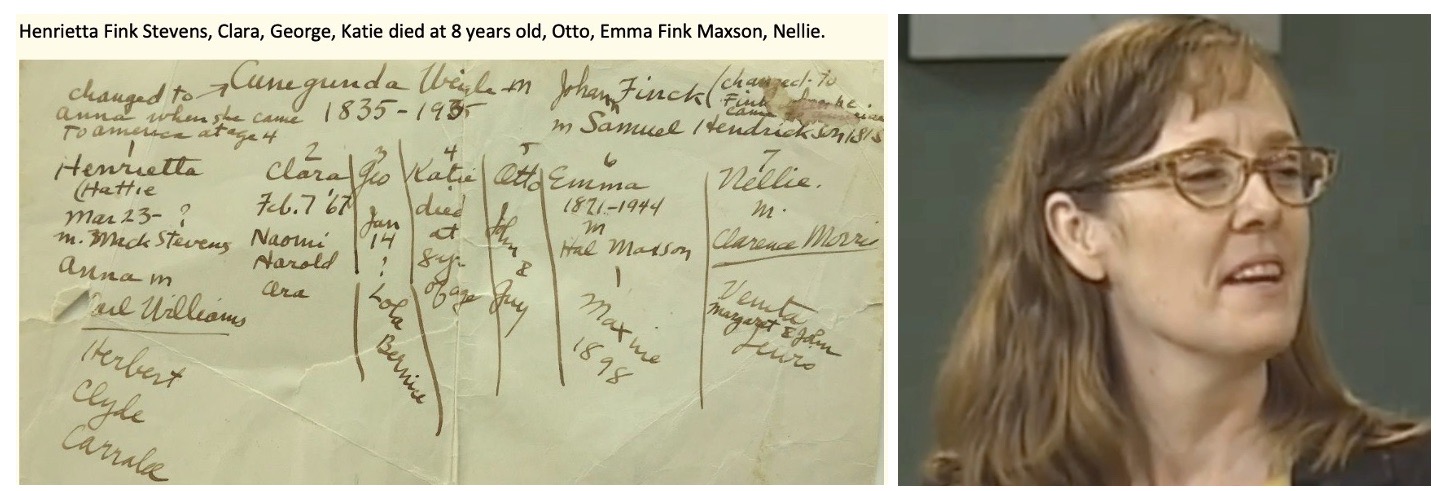 Henrietta Fink Stevens, Clara, George, Katie died at 8 years old, Otto, Emma Fink Maxson, Nellie.
changed to → Cunegunda Weigle m Johann Finck (changed to
anna when she came 1835-1935 Fink when he
To america at age 4 came
m Samuel Hendrickson 1818
1 2 3 4 5 6 7
Henrietta Clara Geo Katie Otto Emma Nellie.
(Hattie Feb. 7 '67 Jan died 1871-1944 m.
Mar 23- ? Naomi 14 at m Clarence Morris
m. Mack Stevens Harold ? 8 yr 8 Hal Maxson
Anna m Ora Lola of age Guy 1
Carl Williams Bernice Maxine Margaret & John
Herbert 1898 Lewis
Clyde